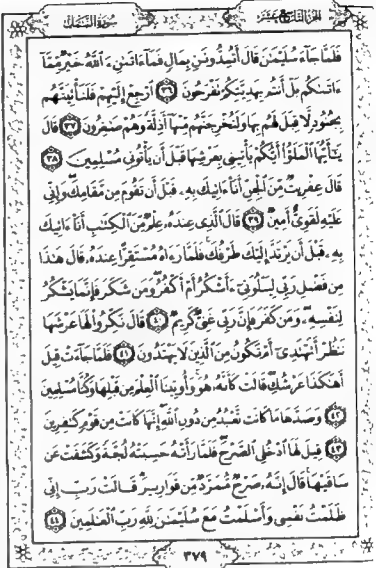 الجزء التاسع عشر
سورة النمل
فَلَمَّا جَآءَ سُلَيْمَٰنَ قَالَ أَتُمِدُّونَنِ بِمَالٍ فَمَآ ءَاتَىٰنِۦَ ٱللَّهُ خَيْرٌ مِّمَّآ
ءَاتَىٰكُم بَلْ أَنتُم بِهَدِيَّتِكُمْ تَفْرَحُونَ ٣٦ ٱرْجِعْ إِلَيْهِمْ فَلَنَأْتِيَنَّهُم
بِجُنُودٍ لَّا قِبَلَ لَهُم بِهَا وَلَنُخْرِجَنَّهُم مِّنْهَآ أَذِلَّةً وَهُمْ صَٰغِرُونَ ٣٧ قَالَ
يَٰٓأَيُّهَا ٱلْمَلَؤُا۟ أَيُّكُمْ يَأْتِينِى بِعَرْشِهَا قَبْلَ أَن يَأْتُونِى مُسْلِمِينَ ٣٨
قَالَ عِفْرِيتٌ مِّنَ ٱلْجِنِّ أَنَا۠ ءَاتِيكَ بِهِۦ قَبْلَ أَن تَقُومَ مِن مَّقَامِكَ وَإِنِّى
عَلَيْهِ لَقَوِىٌّ أَمِينٌ ٣٩ قَالَ ٱلَّذِى عِندَهُۥ عِلْمٌ مِّنَ ٱلْكِتَٰبِ أَنَا۠ ءَاتِيكَ
بِهِۦ قَبْلَ أَن يَرْتَدَّ إِلَيْكَ طَرْفُكَ فَلَمَّا رَءَاهُ مُسْتَقِرًّا عِندَهُۥ قَالَ هَٰذَا
مِن فَضْلِ رَبِّى لِيَبْلُوَنِىٓ ءَأَشْكُرُ أَمْ أَكْفُرُ وَمَن شَكَرَ فَإِنَّمَا يَشْكُرُ
لِنَفْسِهِۦ وَمَن كَفَرَ فَإِنَّ رَبِّى غَنِىٌّ كَرِيمٌ ٤٠ قَالَ نَكِّرُوا۟ لَهَا عَرْشَهَا
نَنظُرْ أَتَهْتَدِىٓ أَمْ تَكُونُ مِنَ ٱلَّذِينَ لَا يَهْتَدُونَ ٤١ فَلَمَّا جَآءَتْ قِيلَ
أَهَٰكَذَا عَرْشُكِ قَالَتْ كَأَنَّهُۥ هُوَ وَأُوتِينَا ٱلْعِلْمَ مِن قَبْلِهَا وَكُنَّا مُسْلِمِينَ
٤٢ وَصَدَّهَا مَا كَانَت تَّعْبُدُ مِن دُونِ ٱللَّهِ إِنَّهَا كَانَتْ مِن قَوْمٍ كَٰفِرِينَ
٤٣ قِيلَ لَهَا ٱدْخُلِى ٱلصَّرْحَ فَلَمَّا رَأَتْهُ حَسِبَتْهُ لُجَّةً وَكَشَفَتْ عَن
سَاقَيْهَا قَالَ إِنَّهُۥ صَرْحٌ مُّمَرَّدٌ مِّن قَوَارِيرَ قَالَتْ رَبِّ إِنِّى
ظَلَمْتُ نَفْسِى وَأَسْلَمْتُ مَعَ سُلَيْمَٰنَ لِلَّهِ رَبِّ ٱلْعَٰلَمِينَ ٤٤
٣٧٩